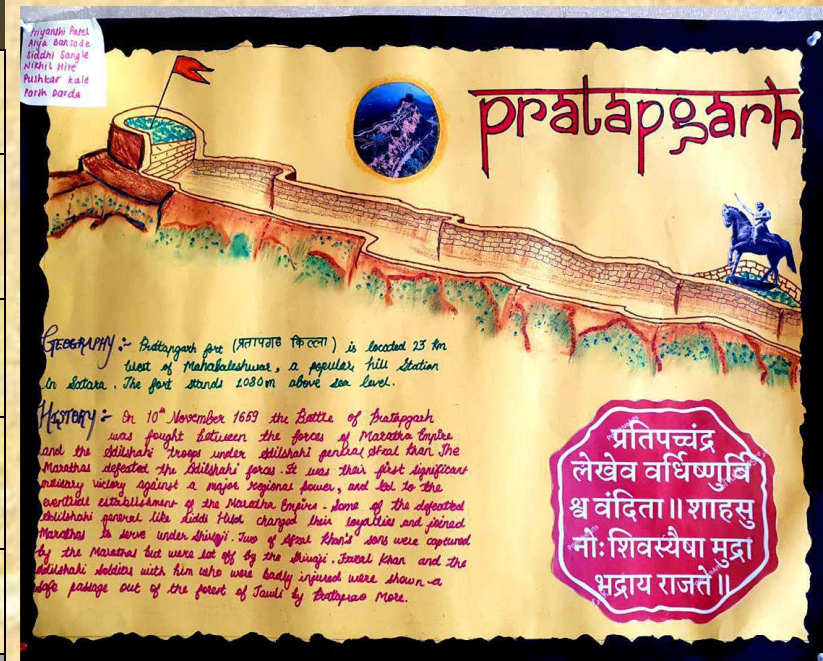 Priyanshi Patel
Arya Bansode
Siddhi Sangle
Nikhil Hire
Pushkar Kale
Parth Darda
Pratapgarh
GEOGRAPHY :- Pratapgarh fort (प्रतापगड किल्ला) is located 23 km
West of Mahabaleshwar, a popular hill Station
in Satara. The fort stands 1080m above sea level.
HISTORY :- On 10th November 1659 the Battle of Pratapgarh
was fought between the forces of Maratha Empire
and the Adilshahi troops under Adilshahi general Afzal Khan The
Marathas defeated the Adilshahi forces. It was their first significant
military victory against a major regional power, and led to the
eventual establishment of the Maratha Empire. Some of the defeated
Adilshahi general like Siddi Hilal changed their loyalties and joined
Marathas to serve under Shivaji. Two of Afzal Khan's sons were captured
by the Marathas but were let off by the Shivaji. Fazal Khan and the
Adilshahi soldiers with him who were badly injured were shown a
safe passage out of the forest of Jawli by Prataprao More.
प्रतिपच्चंद्र
लेखेव वर्धिष्णुर्वि
श्व वंदिता॥ शाहसु
नौः शिवस्यैषा मुद्रा
भद्राय राजते॥